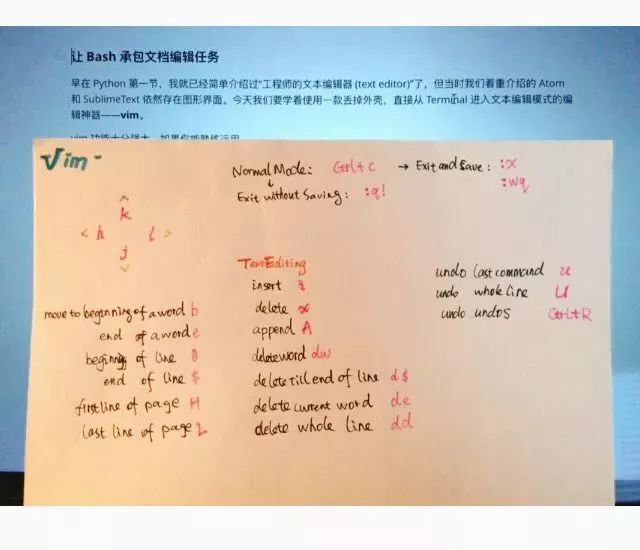 让 Bash 承包文档编辑任务
早在 Python 第一节，我就已经简单介绍过“工程师的文本编辑器 (text editor)”了，但当时我们着重介绍的 Atom
和 SublimeText 依然存在图形界面。今天我们要学着使用一款丢掉外壳，直接从 Terminal 进入文本编辑模式的编
辑神器——vim。
vim 功能十分强大，如果你能熟练运用
Vim -
Normal Mode: Ctrl+c → Exit and Save: :x
:wq
↓
Exit without Saving: :q!
^
k
< h l >
j
v
move to beginning of a word b
end of a word e
beginning of line 0
end of line $
first line of page H
last line of page L
Text Editing
insert i
delete x
append A
delete word dw
delete till end of line d$
delete current word de
delete whole line dd
undo last command u
undo whole line U
undo undos Ctrl+R